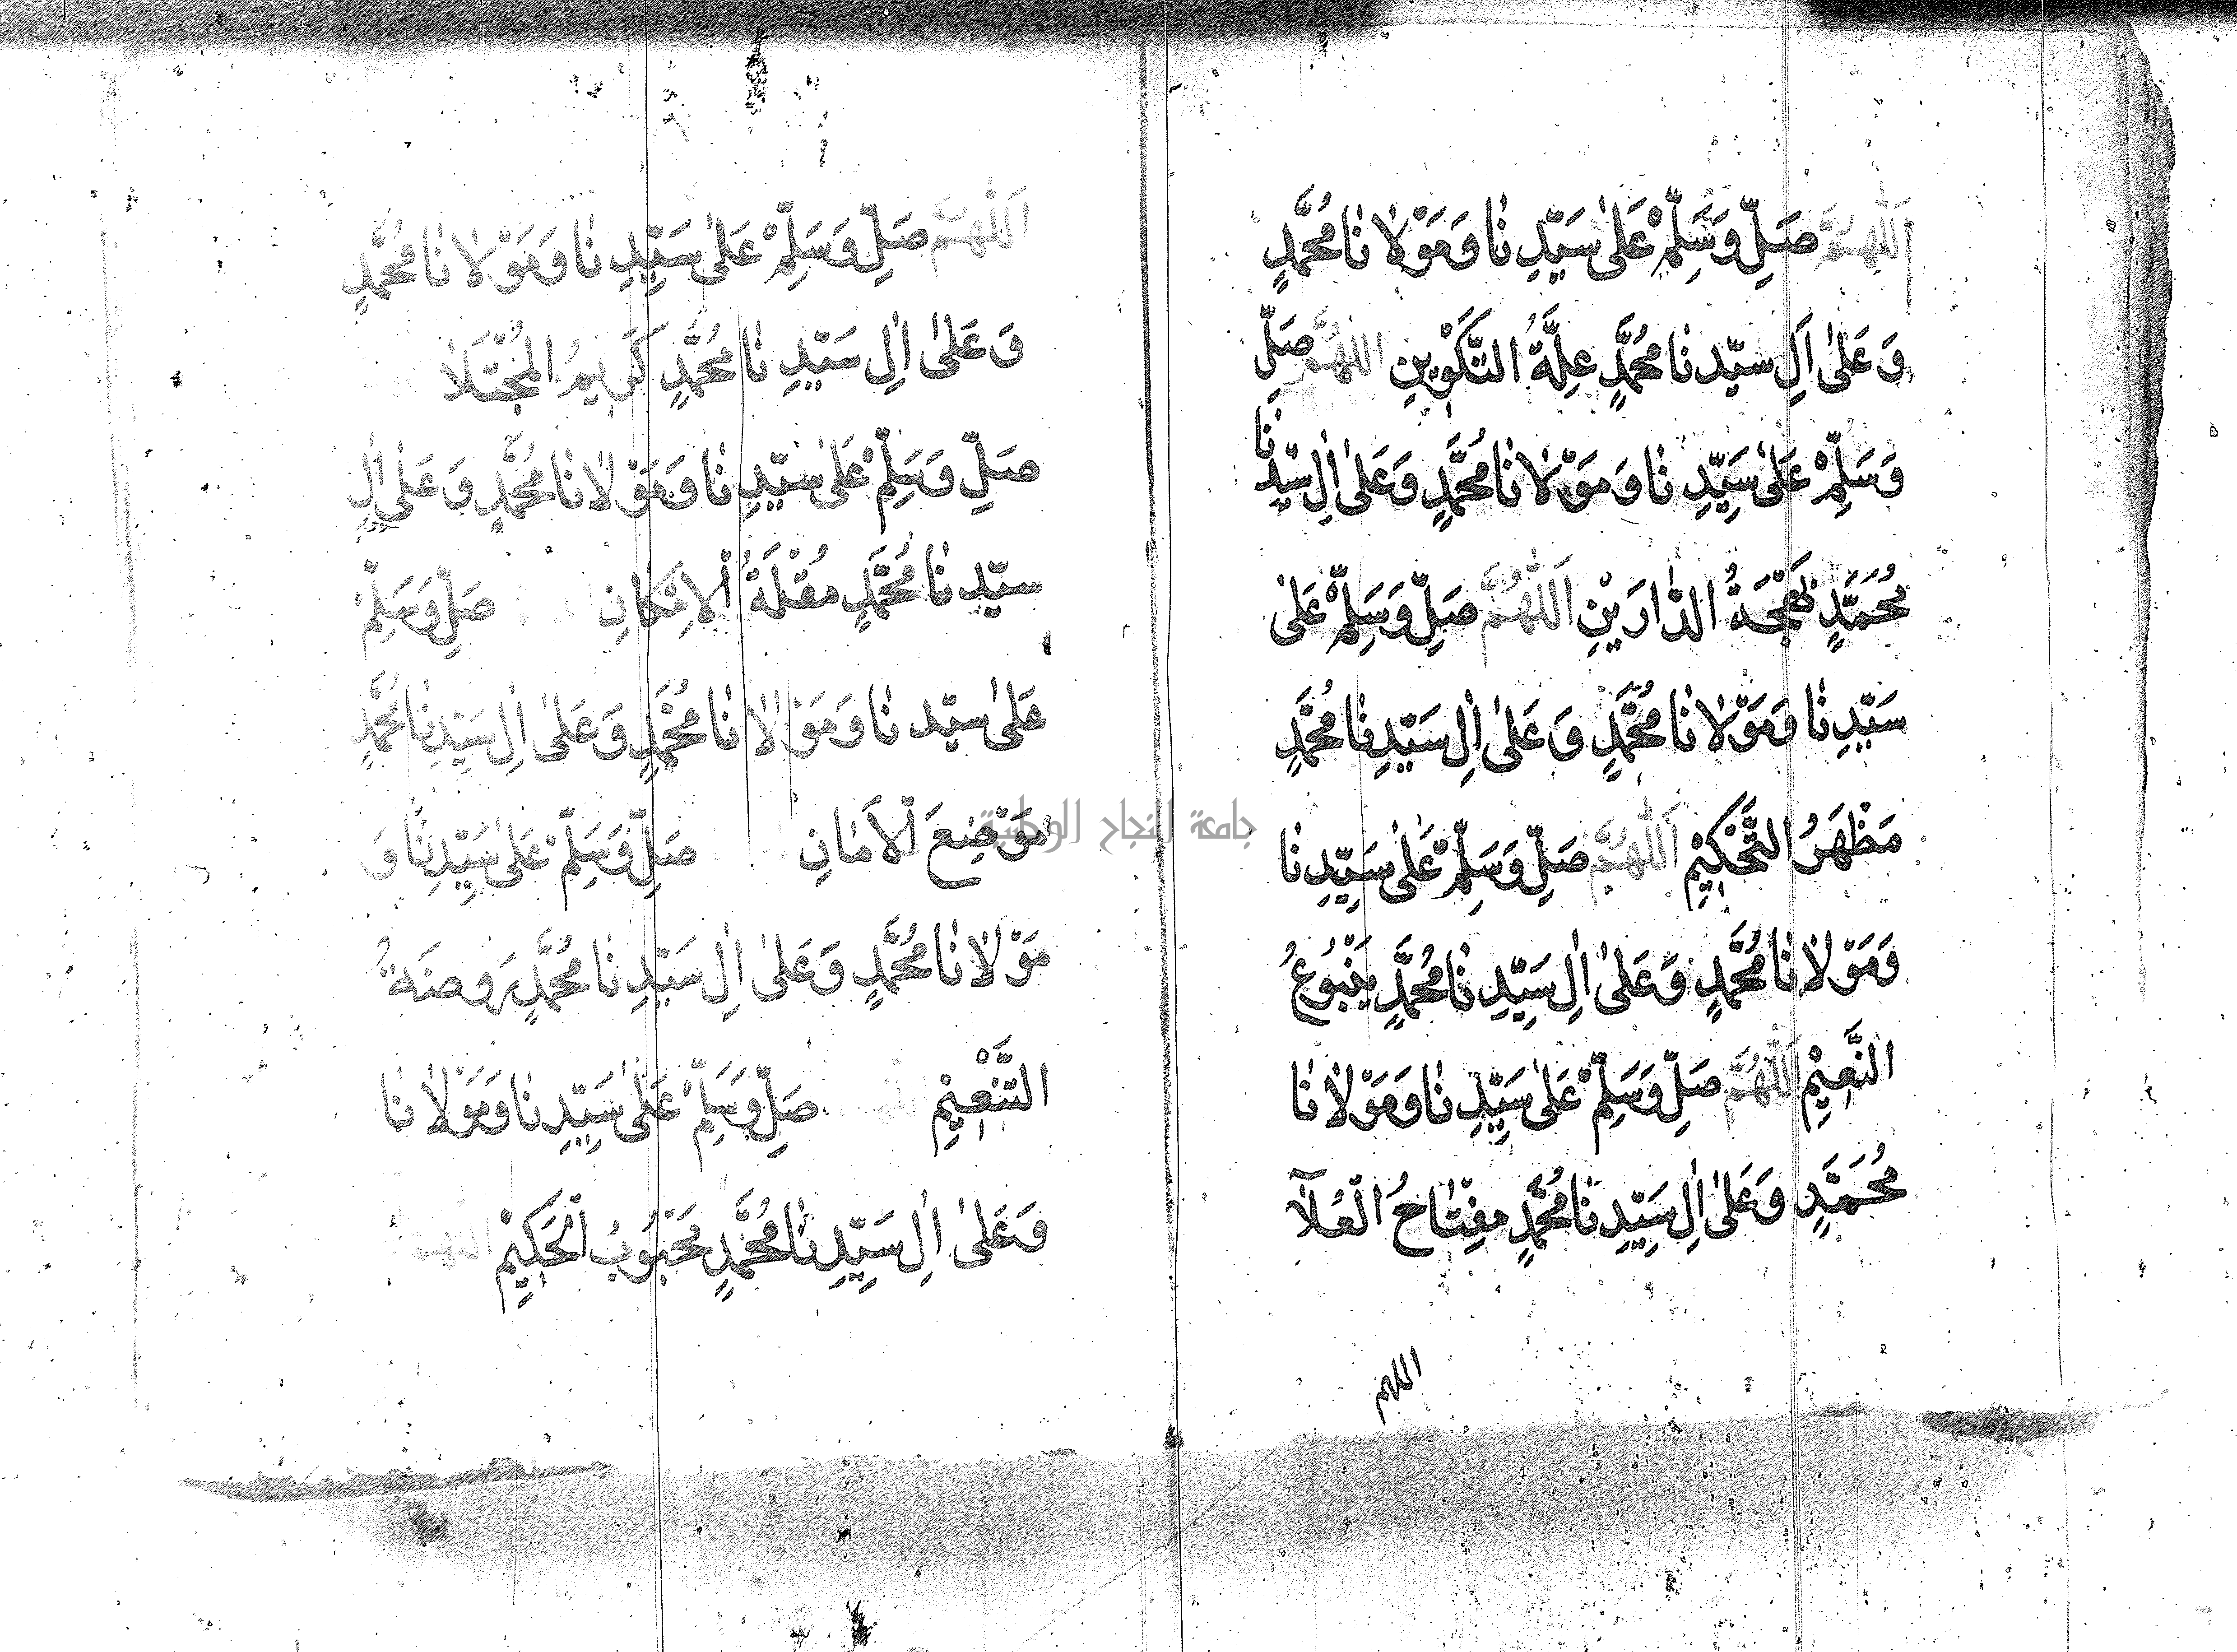 اَللّٰهُمَّ صَلِّ وَسَلِّمْ عَلٰى سَيِّدِنَا وَمَوْلَانَا مُحَمَّدٍ
وَعَلٰى اٰلِ سيّدنَا مُحَمَّدٍ عِلَّةُ التَّكْوِينِ اللهُمَّ صَلِّ
وَسَلِّمْ عَلٰى سَيِّدِنَا وَمَوْلَانَا مُحَمَّدٍ وَعَلٰى اٰلِ سَيِّدِنَا
مُحَمَّدٍ بَهْجَةُ الدَّارَيْنِ اَللّٰهُمَّ صَلِّ وَسَلِّمْ عَلٰى
سَيِّدِنَا وَمَوْلَانَا مُحَمَّدٍ وَعَلٰى اٰلِ سَيِّدِنَا مُحَمَّدٍ
مَظْهَرُ التَّحْكِيْمِ اَللّٰهُمَّ صَلِّ وَسَلِّمْ عَلٰى سَيِّدِنَا
وَمَوْلَانَا مُحَمَّدٍ وَعَلٰى اٰلِ سَيِّدِنَا مُحَمَّدٍ يَنْبُوْعُ
النَّعِيْمِ اَللّٰهُمَّ صَلِّ وَسَلِّمْ عَلٰى سَيِّدِنَا وَمَوْلَانَا
مُحَمَّدٍ وَعَلٰى اٰلِ سَيِّدِنَا مُحَمَّدٍ مِفْتَاحُ الْعُلَآ
اللهم
اَللّٰهُمَّ صَلِّ وَسَلِّمْ عَلٰى سَيِّدِنَا وَمَوْلَانَا مُحَمَّدٍ
وَعَلٰى اٰلِ سَيِّدِنَا مُحَمَّدٍ كَرِيمُ الْمُجْتَلَا
صَلِّ وَسَلِّمْ عَلٰى سَيِّدِنَا وَمَوْلَانَا مُحَمَّدٍ وَعَلٰى اٰلِ
سيّدِنَا مُحَمَّدٍ مُقْلَةُ الْاِمْكَانِ صَلِّ وَسَلِّمْ
عَلٰى سيّدنَا وَمَوْلَانَا مُحَمَّدٍ وَعَلٰى اٰلِ سَيِّدِنَا مُحَمَّدٍ
مَوْضِعَ الْاَمَانِ صَلِّ وَسَلِّمْ عَلٰى سَيِّدِنَا وَ
مَوْلَانَا مُحَمَّدٍ وَعَلٰى اٰلِ سَيِّدِنَا مُحَمَّدٍ رَوضَةُ
التَّنْعِيْمِ صَلِّ وَسَلِّمْ عَلٰى سَيِّدِنَا وَمَوْلَانَا
وَعَلٰى اٰلِ سَيِّدِنَا مُحَمَّدٍ مَحْبُوبُ الْحَكِيْمِ
جامعة النجاح الوطنية